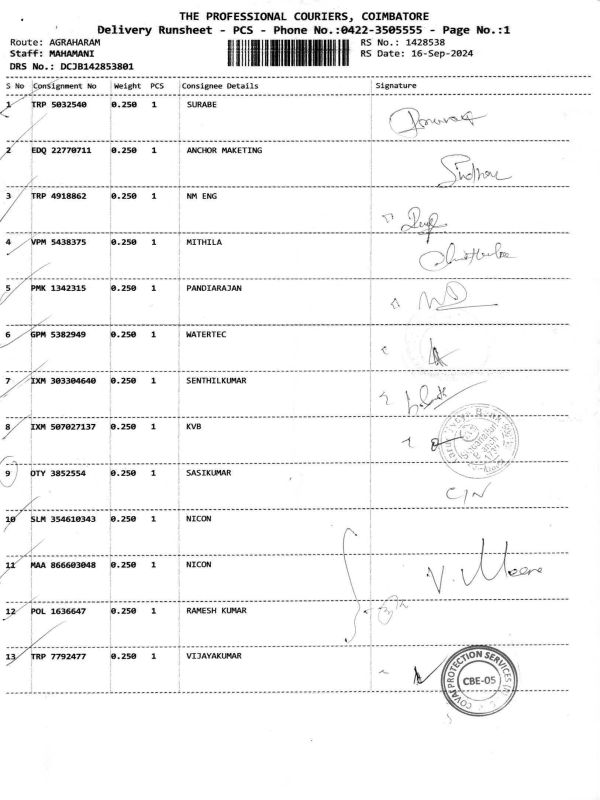 THE PROFESSIONAL COURIERS, COIMBATORE
Delivery Runsheet - PCS - Phone No.:0422-3505555 - Page No.:1
Route: AGRAHARAM RS No.: 1428538
Staff: MAHAMANI RS Date: 16-Sep-2024
DRS No.: DCJB142853801
S No Consignment No Weight PCS Consignee Details Signature
1 TRP 5032540 0.250 1 SURABE
2 EDQ 22770711 0.250 1 ANCHOR MAKETING
3 TRP 4918862 0.250 1 NM ENG
4 VPM 5438375 0.250 1 MITHILA
5 PMK 1342315 0.250 1 PANDIARAJAN
6 GPM 5382949 0.250 1 WATERTEC
7 IXM 303304640 0.250 1 SENTHILKUMAR
8 IXM 507027137 0.250 1 KVB
9 OTY 3852554 0.250 1 SASIKUMAR
C/N
10 SLM 354610343 0.250 1 NICON
11 MAA 866603048 0.250 1 NICON
V. Meena
12 POL 1636647 0.250 1 RAMESH KUMAR
13 TRP 7792477 0.250 1 VIJAYAKUMAR
COVAI PROTECTION SERVICES
CBE-05